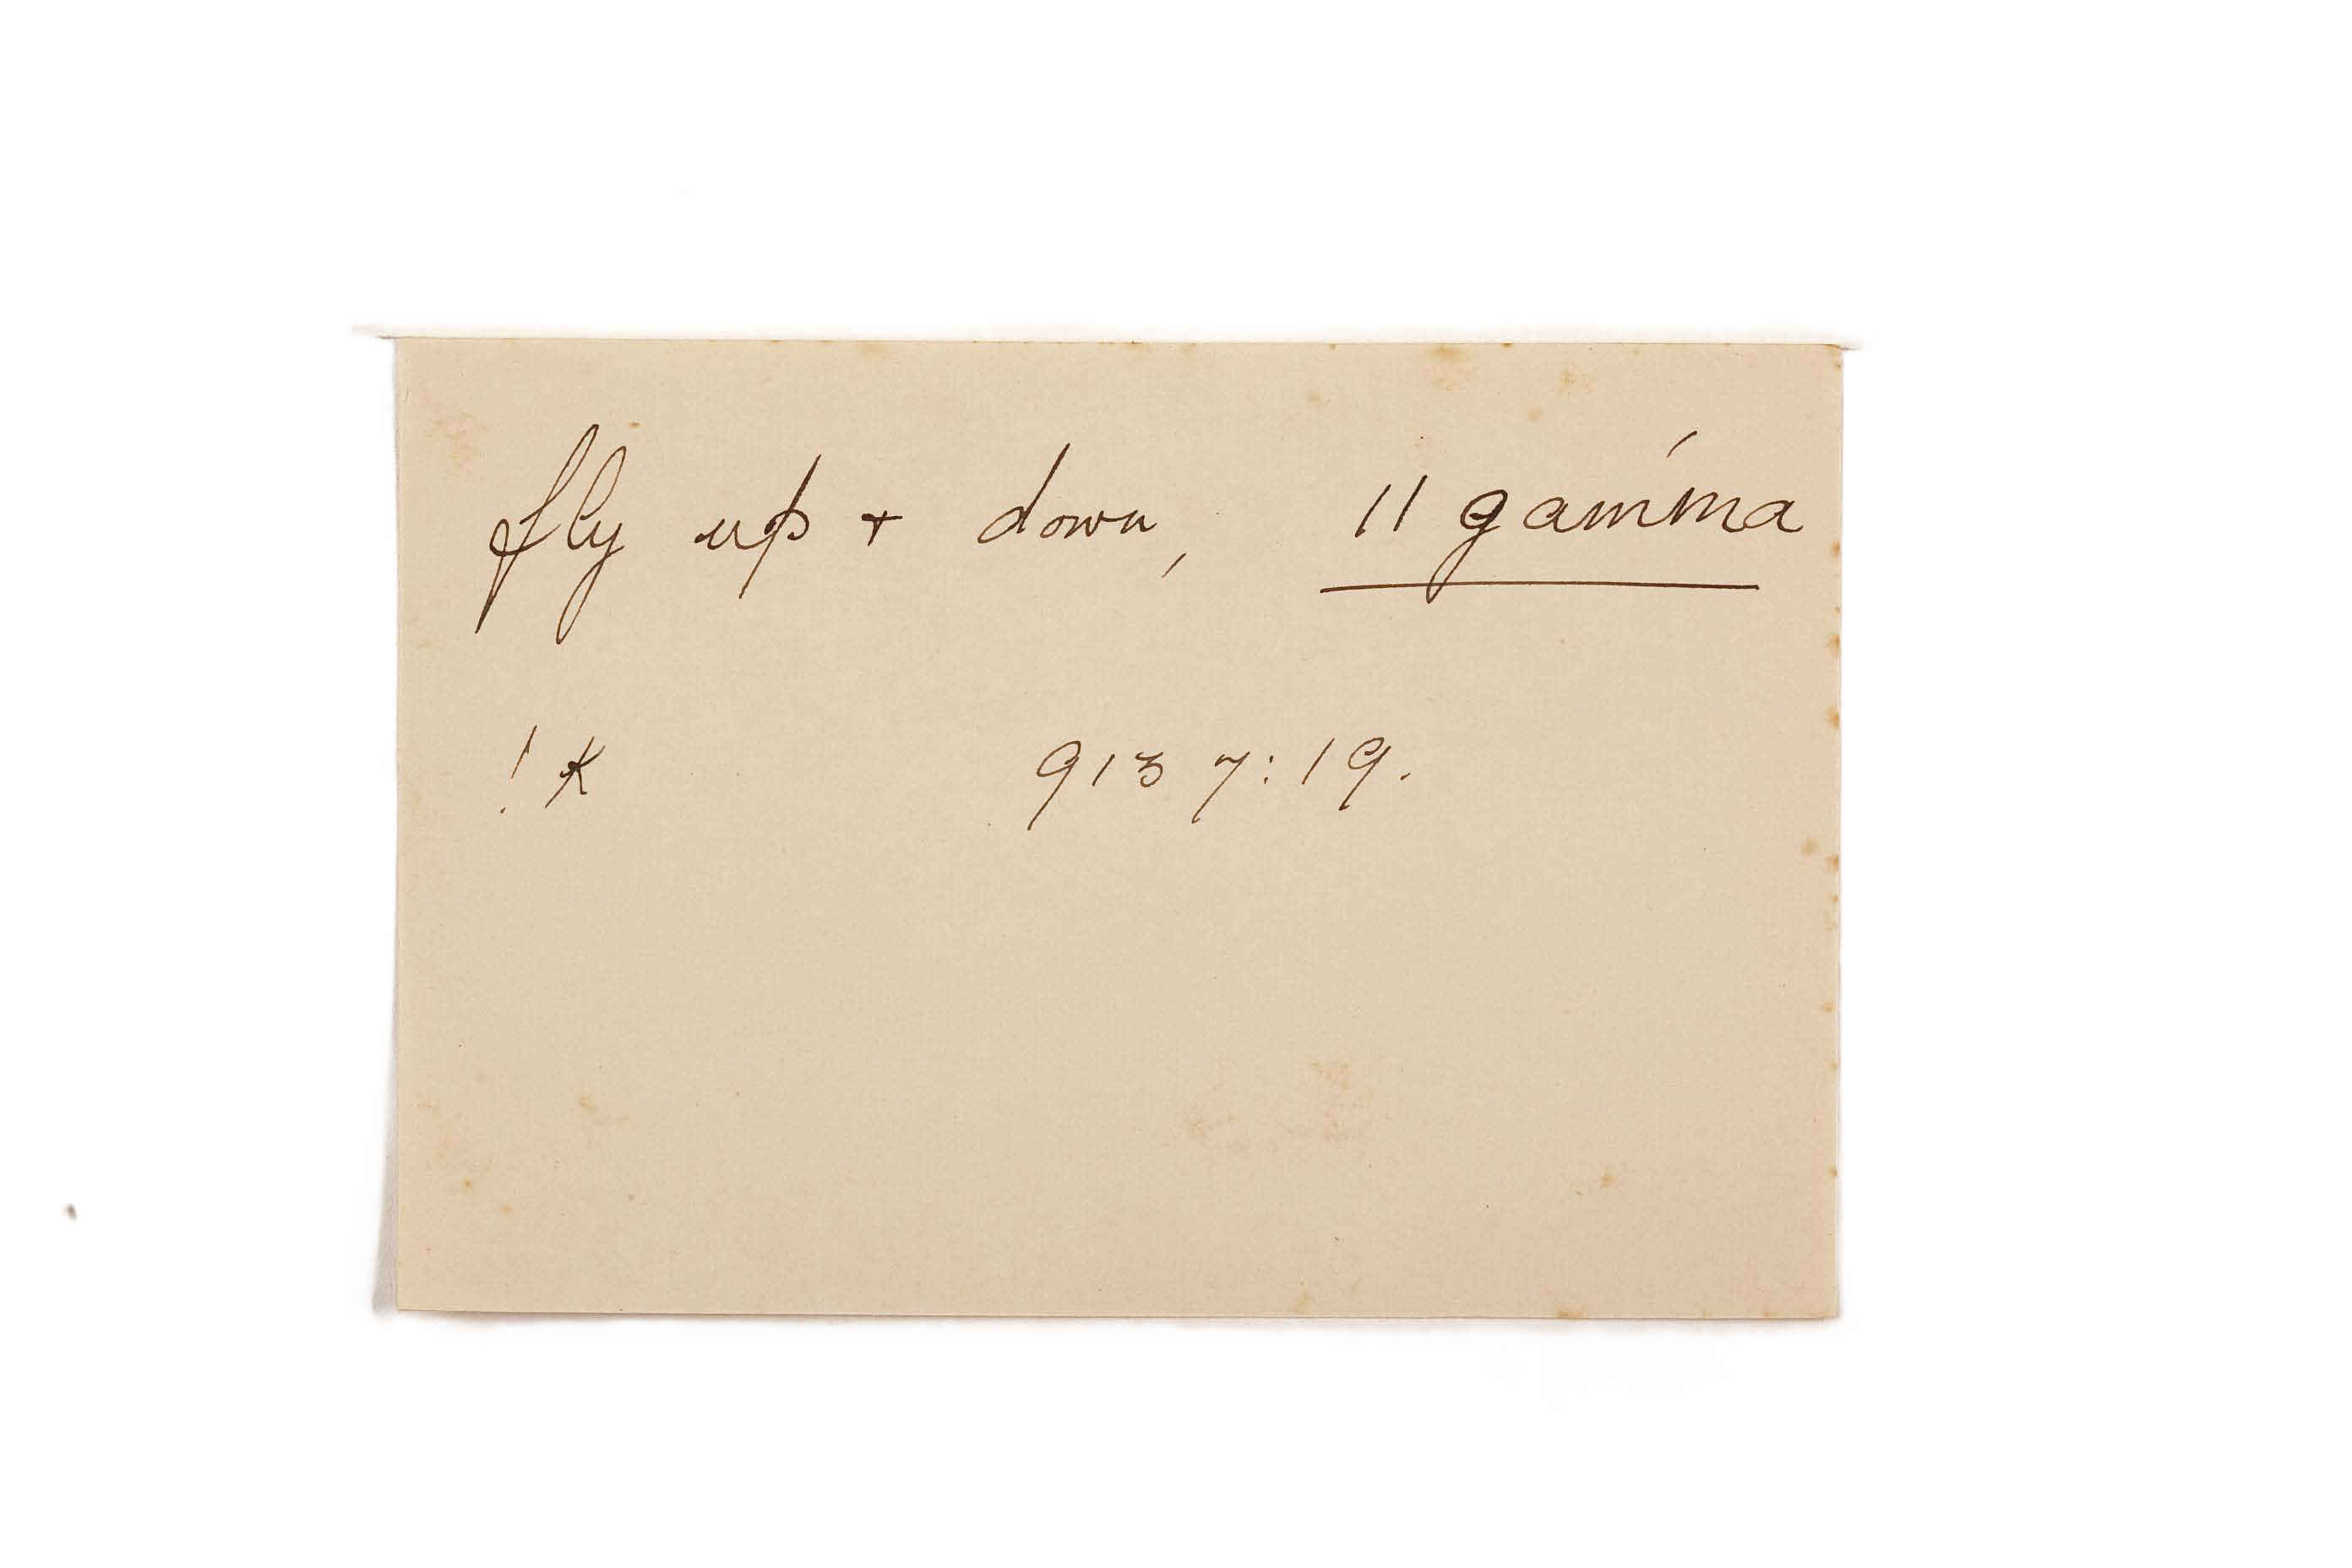 fly up + down, || gamḿa
! K 913 7:19.